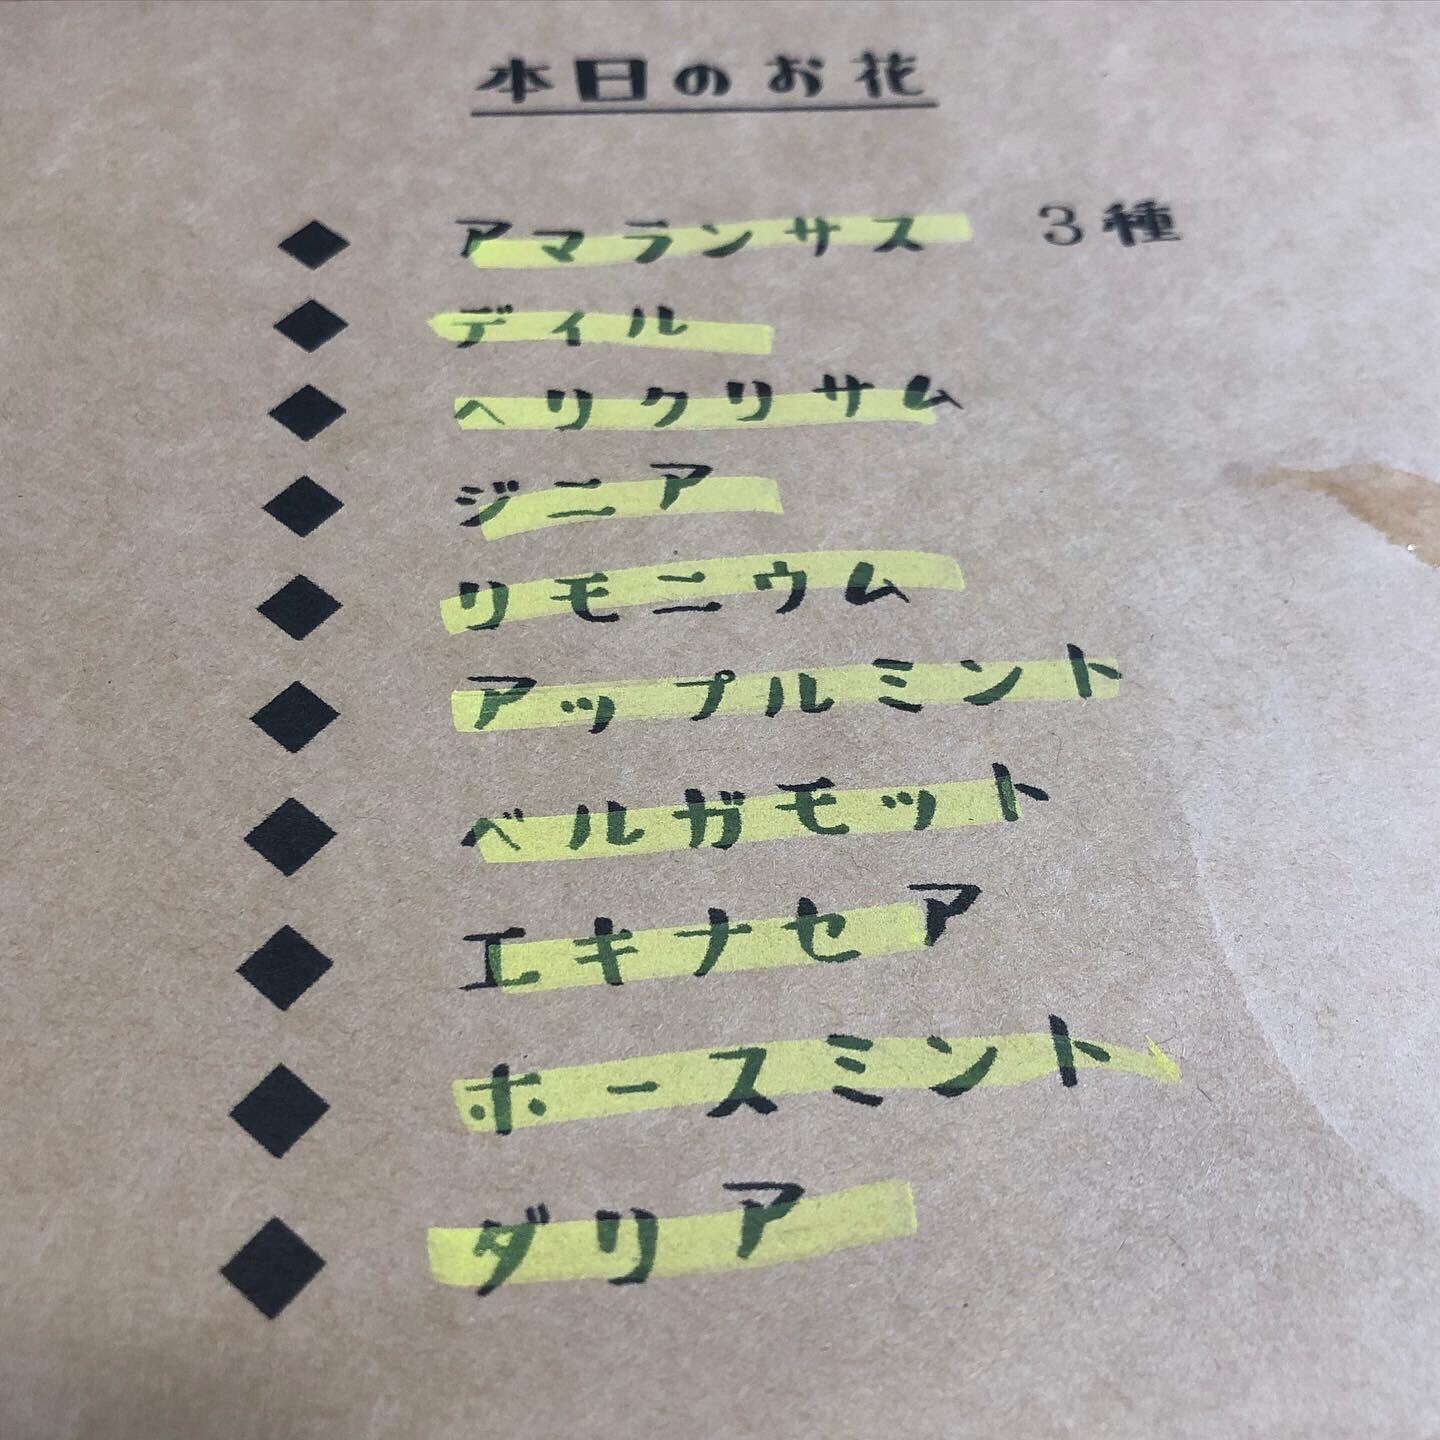 本日のお花
◆ アマランサス 3種
◆ ディル
◆ ヘリクリサム
◆ ジニア
◆ リモニウム
◆ アップルミント
◆ ベルガモット
◆ エキナセア
◆ ホースミント
◆ ダリア